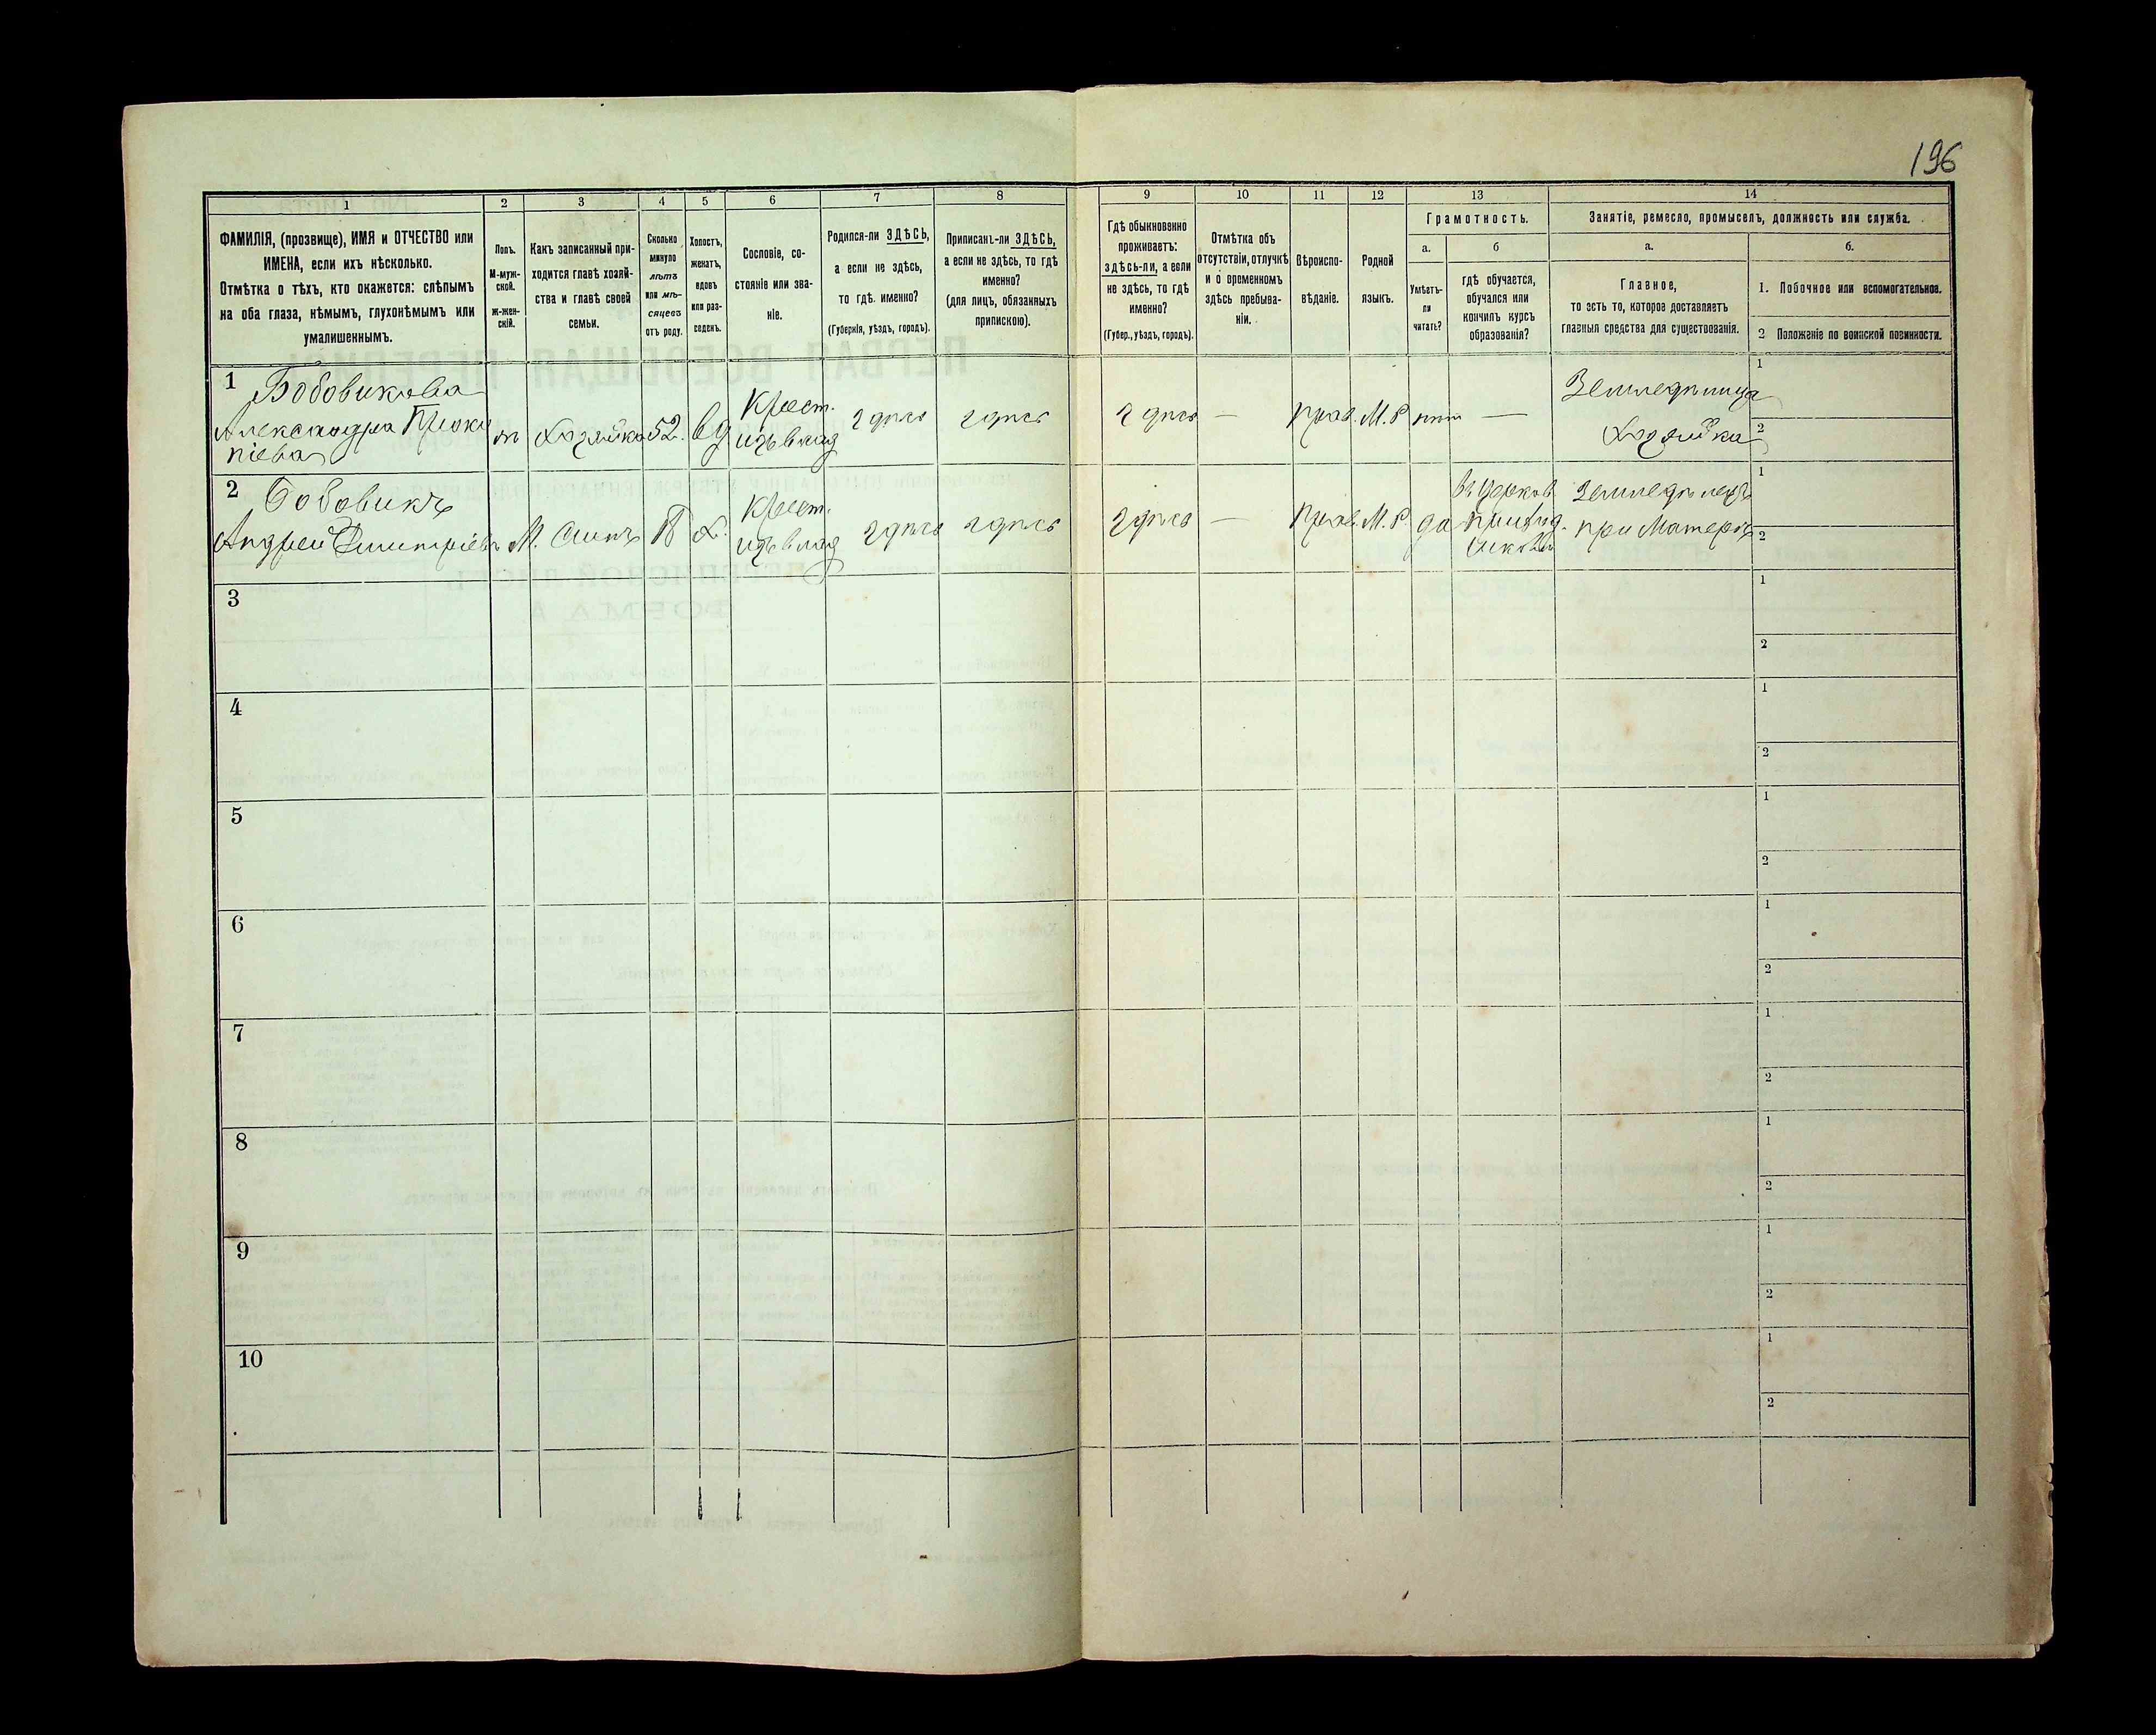 196
1
2
3
4
5
6
7
8
9
10
11
12
13
14
ФАМИЛІЯ, (прозвище), ИМЯ и ОТЧЕСТВО или
ИМЕНА, если ихъ нѣсколько.
Отмѣтка о тѣхъ, кто окажется: слѣпымъ
на оба глаза, нѣмымъ, глухонѣмымъ или
умалишеннымъ.
Полъ.
М-муж-
ской.
Ж-жен-
скій.
Какъ записанный при-
ходится главѣ хозяй-
ства и главѣ своей
семьи.
Сколько
минуло
лѣтъ
или мѣ-
сяцевъ
отъ роду.
Холостъ,
женатъ,
вдовъ
или раз-
веденъ.
Сословіе, со-
стояніе или зва-
ніе.
Родился-ли ЗДѢСЬ,
а если не здѣсь,
то гдѣ именно?
(Губернія, уѣздъ, городъ).
Приписанъ-ли ЗДѢСЬ,
а если не здѣсь, то гдѣ
именно?
(для лицъ, обязанныхъ
припискою).
Гдѣ обыкновенно
проживаетъ:
здѣсь-ли, а если
не здѣсь, то гдѣ
именно?
(Губер., уѣздъ, городъ).
Отмѣтка объ
отсутствіи, отлучкѣ
и о временномъ
здѣсь пребыва-
ніи.
Вѣроиспо-
вѣданіе.
Родной
языкъ.
Грамотность.
а.
Умѣетъ-
ли
читать?
б
гдѣ обучается,
обучался или
кончилъ курсъ
образованія?
Занятіе, ремесло, промыселъ, должность или служба.
а.
Главное,
то есть то, которое доставляетъ
главныя средства для существованія.
б.
1. Побочное или вспомогательное.
2 Положеніе по воинской повинности.
1 Бобовикова
Александра Проко
піева
ж
Хозяйка
52.
вд
Крест.
изъ влад
здѣсь
здѣсь
здѣсь
—
прав.
М.Р
нѣт
—
Земледѣлица
Хозяйка
1
2
2 Бобовикъ
Андрей Дмитріевъ
М.
Сынъ
Х.
Крест.
изъ влад
здѣсь
здѣсь
здѣсь
—
Прав.
М.Р.
да
въ церков
приход.
школѣ
Земледѣлецъ
при Матери
1
2
3
1
2
4
1
2
5
1
2
6
1
2
7
1
2
8
1
2
9
1
2
10
1
2